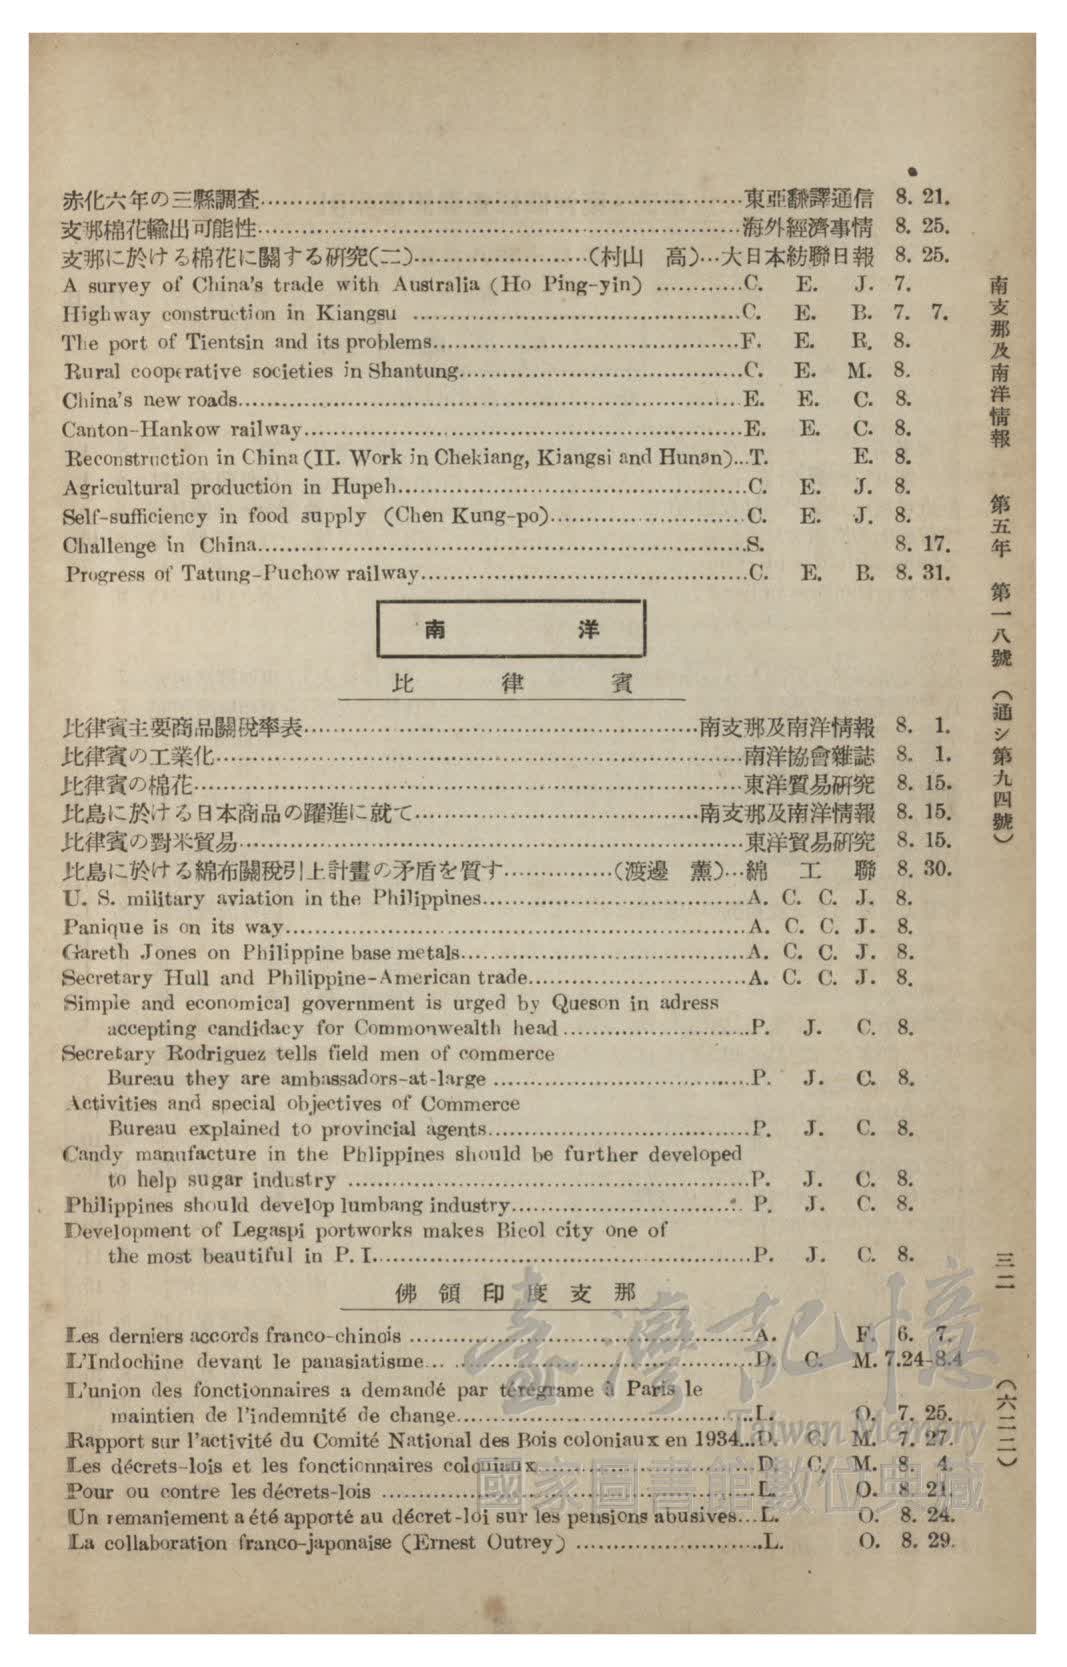 赤化六年の三縣調査……東亞飜譯通信 8. 21.
支那棉花輸出可能性……海外經濟事情 8. 25.
支那に於ける棉花に關する硏究(二)……(村山 高)…大日本紡聯日報 8. 25.
A survey of China's trade with Australia (Ho Ping-yin) ……C. E. J. 7.
Highway construction in Kiangsu ……C. E. B. 7. 7.
The port of Tientsin and its problems……F. E. R. 8.
Rural cooperative societies in Shantung……C. E. M. 8.
China's new roads……E. E. C. 8.
Canton-Hankow railway……E. E. C. 8.
Reconstruction in China (II. Work in Chekiang, Kiangsi and Hunan)…T. E. 8.
Agricultural production in Hupeh……C. E. J. 8.
Self-sufficiency in food supply (Chen Kung-po)……C. E. J. 8.
Challenge in China……S. 8. 17.
Progress of Tatung-Puchow railway……C. E. B. 8. 31.
南洋
比律賓
比律賓主要商品關稅率表……南支那及南洋情報 8. 1.
比律賓の工業化……南洋協會雜誌 8. 1.
比律賓の棉花……東洋貿易硏究 8. 15.
比島に於ける日本商品の躍進に就て……南支那及南洋情報 8. 15.
比律賓の對米貿易……東洋貿易硏究 8. 15.
比島に於ける綿布關稅引上計畫の矛盾を質す……(渡邊 薰)…綿工聯 8. 30.
U. S. military aviation in the Philippines……A. C. C. J. 8.
Panique is on its way……A. C. C. J. 8.
Gareth Jones on Philippine base metals……A. C. C. J. 8.
Secretary Hull and Philippine-American trade……A. C. C. J. 8.
Simple and economical government is urged by Queson in adress
accepting candidacy for Commonwealth head……P. J. C. 8.
Secretary Rodriguez tells field men of commerce
Bureau they are ambassadors-at-large ……P. J. C. 8.
Activities and special objectives of Commerce
Bureau explained to provincial agents……P. J. C. 8.
Candy manufacture in the Phlippines should be further developed
to help sugar industry ……P. J. C. 8.
Philippines should develop lumbang industry……P. J. C. 8.
Development of Legaspi portworks makes Bicol city one of
the most beautiful in P. I.……P. J. C. 8.
佛領印度支那
Les derniers accords franco-chinois ……A. F. 6. 7.
L'Indochine devant le panasiatisme……D. C. M. 7.24-8.4
L'union des fonctionnaires a demandé par térégrame à Paris le
maintien de l'indemnité de change……L. O. 7. 25.
Rapport sur l'activité du Comité National des Bois coloniaux en 1934…D. C. M. 7. 27.
Les décrets-lois et les fonctionnaires coloniaux……D. C. M. 8. 4.
Pour ou contre les décrets-lois ……L. O. 8. 21.
Un remaniement a été apporté au décret-loi sur les pensions abusives…L. O. 8. 24.
La collaboration franco-japonaise (Ernest Outrey) ……L. O. 8. 29.
南支那及南洋情報 第五年 第一八號 (通シ第九四號)
三二
(六二二)
臺灣記憶
Taiwan Memory
國家圖書館數位典藏